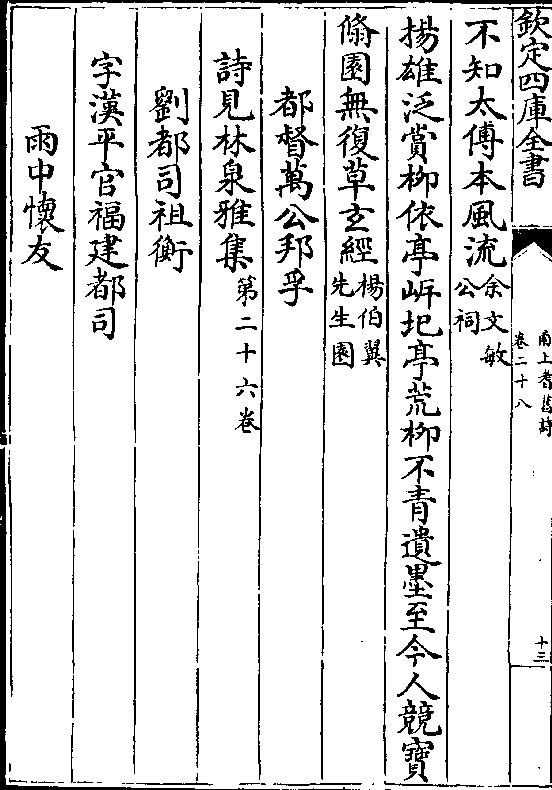 欽定四庫全書
甬上耆舊詩
卷二十八
十三
不知太傅本風流余文敏公祠
揚雄泛賞柳依亭岍圯亭荒柳不青遺墨至今人競寶
翛園無復草玄經楊伯翼先生園
都督萬公邦孚
詩見林泉雅集第二十六卷
劉都司祖衡
字漢平官福建都司
雨中懷友